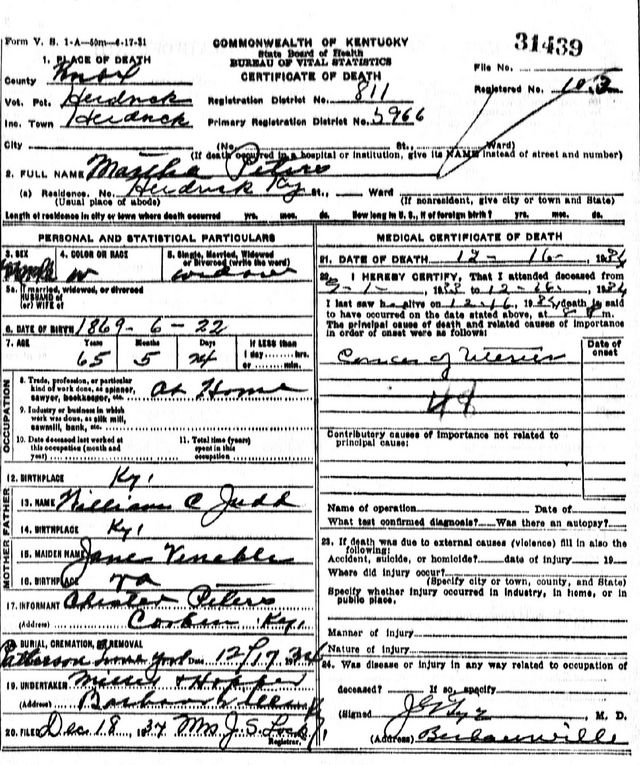 Form V. S. 1-A—40m—4-17-31
COMMONWEALTH OF KENTUCKY
State Board of Health
BUREAU OF VITAL STATISTICS
CERTIFICATE OF DEATH
31439
File No.
Registered No. 103
1. PLACE OF DEATH
County Knox
Vot. Pct. Heidrick Registration District No. 811
Inc. Town Heidrick Primary Registration District No. 5966
City (No. St., Ward)
(If death occurred in a hospital or institution, give its NAME instead of street and number)
2. FULL NAME Martha Peters
(a) Residence. No. Heidrick Ky St., Ward
(Usual place of abode) (If nonresident, give city or town and State)
Length of residence in city or town where death occurred yrs. mos. ds. How long in U. S., if of foreign birth? yrs. mos. ds.
PERSONAL AND STATISTICAL PARTICULARS
3. SEX 4. COLOR OR RACE 5. Single, Married, Widowed or Divorced (write the word)
Female W widow
5a. If married, widowed, or divorced
HUSBAND of
(or) WIFE of
6. DATE OF BIRTH 1869-6-22
7. AGE Years Months Days If LESS than
1 day hrs.
or min.
65 5 24
OCCUPATION
8. Trade, profession, or particular
kind of work done, as spinner,
sawyer, bookkeeper, etc. At Home
9. Industry or business in which
work was done, as silk mill,
sawmill, bank, etc.
10. Date deceased last worked at
this occupation (month and
year)
11. Total time (years)
spent in this
occupation
12. BIRTHPLACE Ky.
FATHER
13. NAME William C Judd
14. BIRTHPLACE Ky.
MOTHER
15. MAIDEN NAME Jane Venable
16. BIRTHPLACE Va
17. INFORMANT Chester Peters
(Address) Corbin Ky.
18. BURIAL, CREMATION, OR REMOVAL
Patterson Date 12/17 1934
19. UNDERTAKER Hopper
(Address) Barbourville
20. FILED Dec 18, 1934 Mrs J. S. Registrar.
MEDICAL CERTIFICATE OF DEATH
21. DATE OF DEATH 12-16-, 1934
22. I HEREBY CERTIFY, That I attended deceased from
to 12-16-, 1934
I last saw h alive on 12-16, 1934, death is said
to have occurred on the date stated above, at 8 m.
The principal cause of death and related causes of importance
in order of onset were as follows:
Date of
onset
Cancer of Uterus
48
Contributory causes of importance not related to
principal cause:
Name of operation Date of
What test confirmed diagnosis? Was there an autopsy?
23. If death was due to external causes (violence) fill in also the
following:
Accident, suicide, or homicide? date of injury 19
Where did injury occur?
(Specify city or town, county, and State)
Specify whether injury occurred in industry, in home, or in
public place.
Manner of injury
Nature of injury
24. Was disease or injury in any way related to occupation of
deceased? If so, specify
(Signed) M. D.
(Address) Barbourville